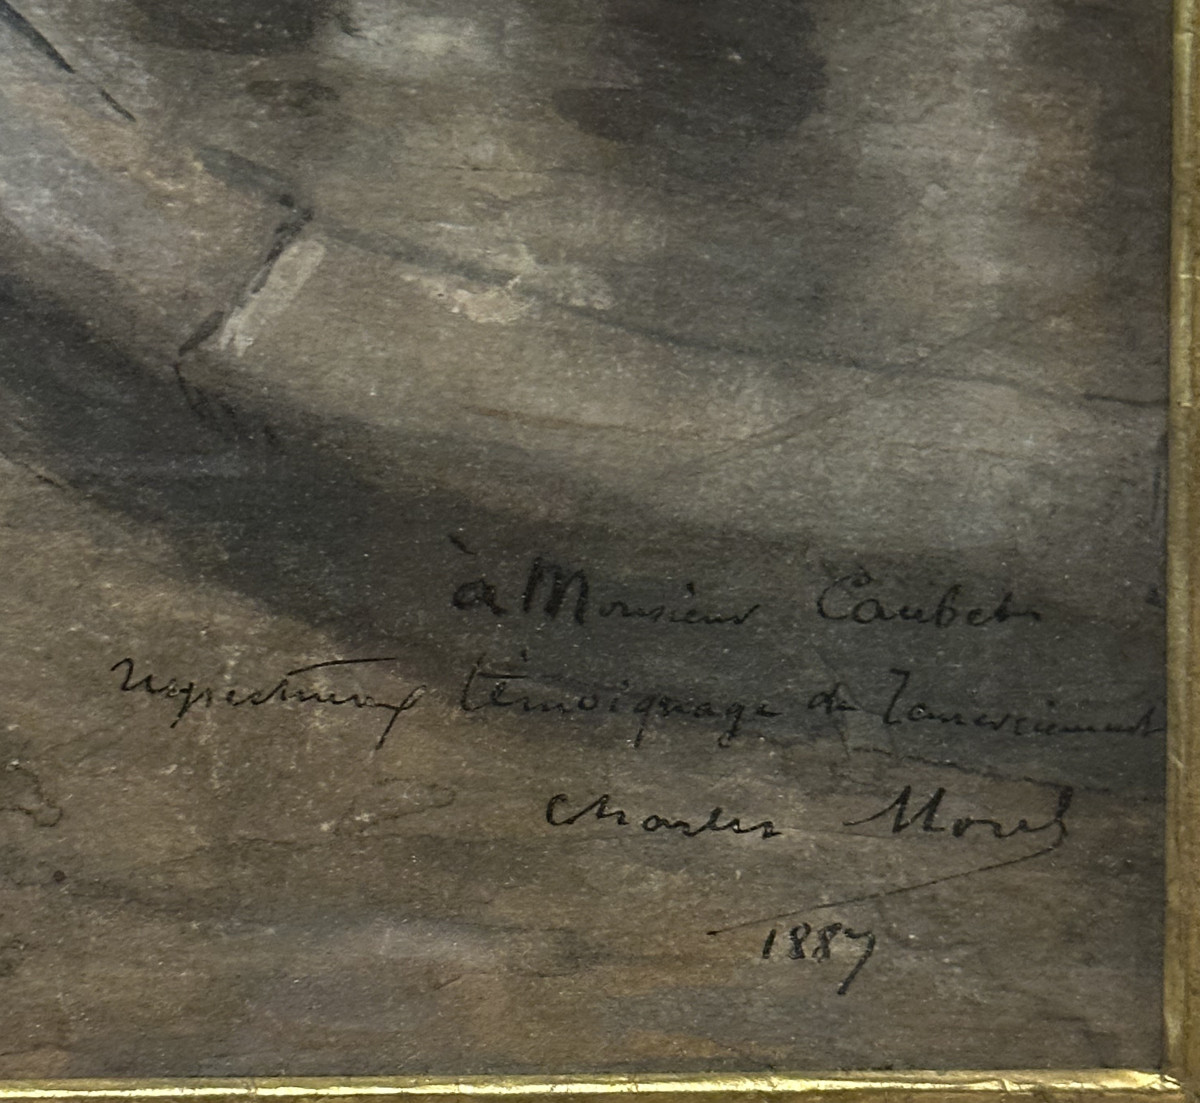 à Monsieur Caubet
respectueux témoignage de remerciement
Charles Morel
1887